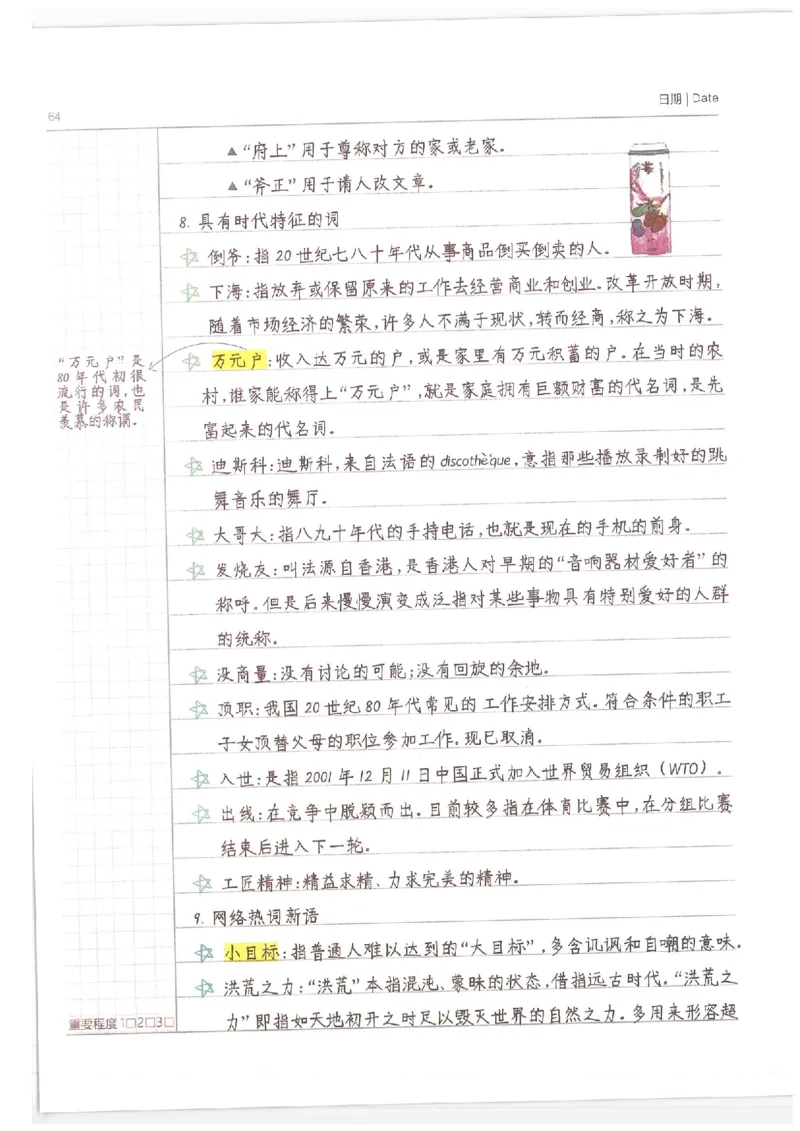 日期 | Date
64
▲“府上”用于尊称对方的家或老家。
▲“斧正”用于请人改文章。
8. 具有时代特征的词
倒爷:指20世纪七八十年代从事商品倒买倒卖的人。
下海:指放弃或保留原来的工作去经营商业和创业。改革开放时期,
随着市场经济的繁荣,许多人不满于现状,转而经商,称之为下海。
“万元户”是
80年代初很
流行的词,也
是许多农民
羡慕的称谓。
万元户:收入达万元的户,或是家里有万元积蓄的户。在当时的农
村,谁家能称得上“万元户”,就是家庭拥有巨额财富的代名词,是先
富起来的代名词。
迪斯科:迪斯科,来自法语的discothèque,意指那些播放录制好的跳
舞音乐的舞厅。
大哥大:指八九十年代的手持电话,也就是现在的手机的前身。
发烧友:叫法源自香港,是香港人对早期的“音响器材爱好者”的
称呼。但是后来慢慢演变成泛指对某些事物具有特别爱好的人群
的统称。
没商量:没有讨论的可能;没有回旋的余地。
顶职:我国20世纪80年代常见的工作安排方式。符合条件的职工
子女顶替父母的职位参加工作。现已取消。
入世:是指2001年12月11日中国正式加入世界贸易组织(WTO)。
出线:在竞争中脱颖而出。目前较多指在体育比赛中,在分组比赛
结束后进入下一轮。
工匠精神:精益求精、力求完美的精神。
9. 网络热词新语
小目标:指普通人难以达到的“大目标”,多含讥讽和自嘲的意味。
洪荒之力:“洪荒”本指混沌、蒙昧的状态,借指远古时代。“洪荒之
力”即指如天地初开之时足以毁灭世界的自然之力。多用来形容超
重要程度1□2□3□